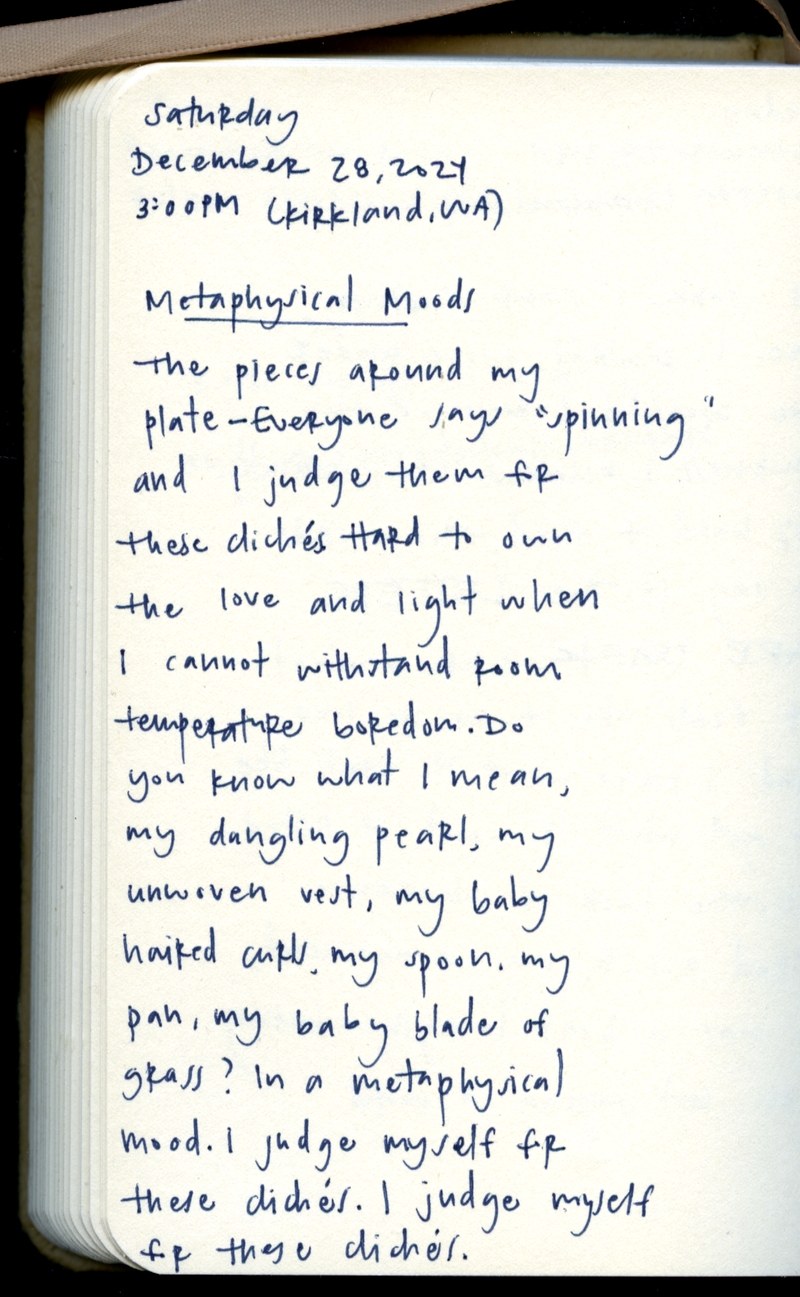 Saturday
December 28, 2024
3:00PM (Kirkland, WA)
Metaphysical Moods
The pieces around my
plate - Everyone says "spinning"
and I judge them fr
these clichés Hard to own
the love and light when
I cannot withstand room
temperature boredom. Do
you know what I mean,
my dangling pearl, my
unwoven vest, my baby
haired curls, my spoon, my
pan, my baby blade of
grass? In a metaphysical
mood. I judge myself fr
these clichés. I judge myself
fr these clichés.